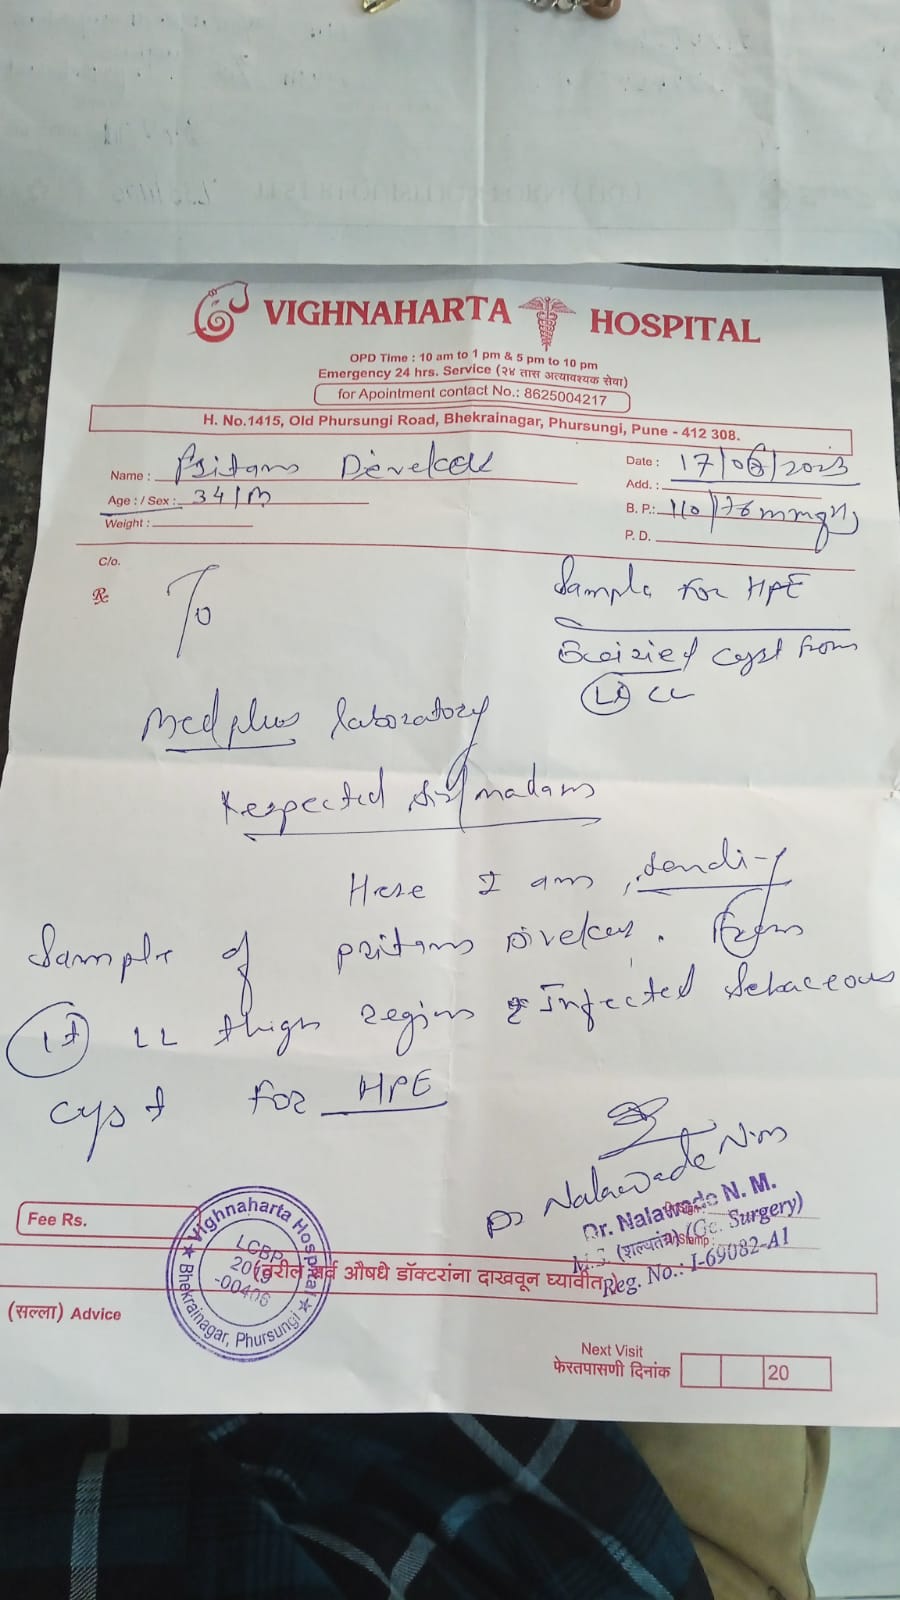 VIGHNAHARTA HOSPITAL
OPD Time : 10 am to 1 pm & 5 pm to 10 pm
Emergency 24 hrs. Service (२४ तास अत्यावश्यक सेवा)
for Apointment contact No.: 8625004217
H. No.1415, Old Phursungi Road, Bhekrainagar, Phursungi, Pune - 412 308.
Name : Pritam Divekar
Date : 17/08/2023
Age : / Sex : 34/M
Add. :
Weight :
B. P.: 110/76 mmHg
P. D.
C/o.
Rx
To
Sample for HPE
Excizied cyst from
Lt LL
Medplus laboratory
Respected sir/madam
Here I am sending
Sample of pritam Divekar. From
Lt LL thigh region Infected Sebaceous
cyst for HPE
Dr Nalawade N.M
Dr. Nalawade N. M.
M.S. (शल्यतंत्र) (Ge. Surgery)
Reg. No.: I-69082-A1
Fee Rs.
Vighnaharta Hospital
LCBP
2019
-00406
Bhekrainagar, Phursungi
(वरील सर्व औषधे डॉक्टरांना दाखवून घ्यावीत)
(सल्ला) Advice
Next Visit
फेरतपासणी दिनांक 20